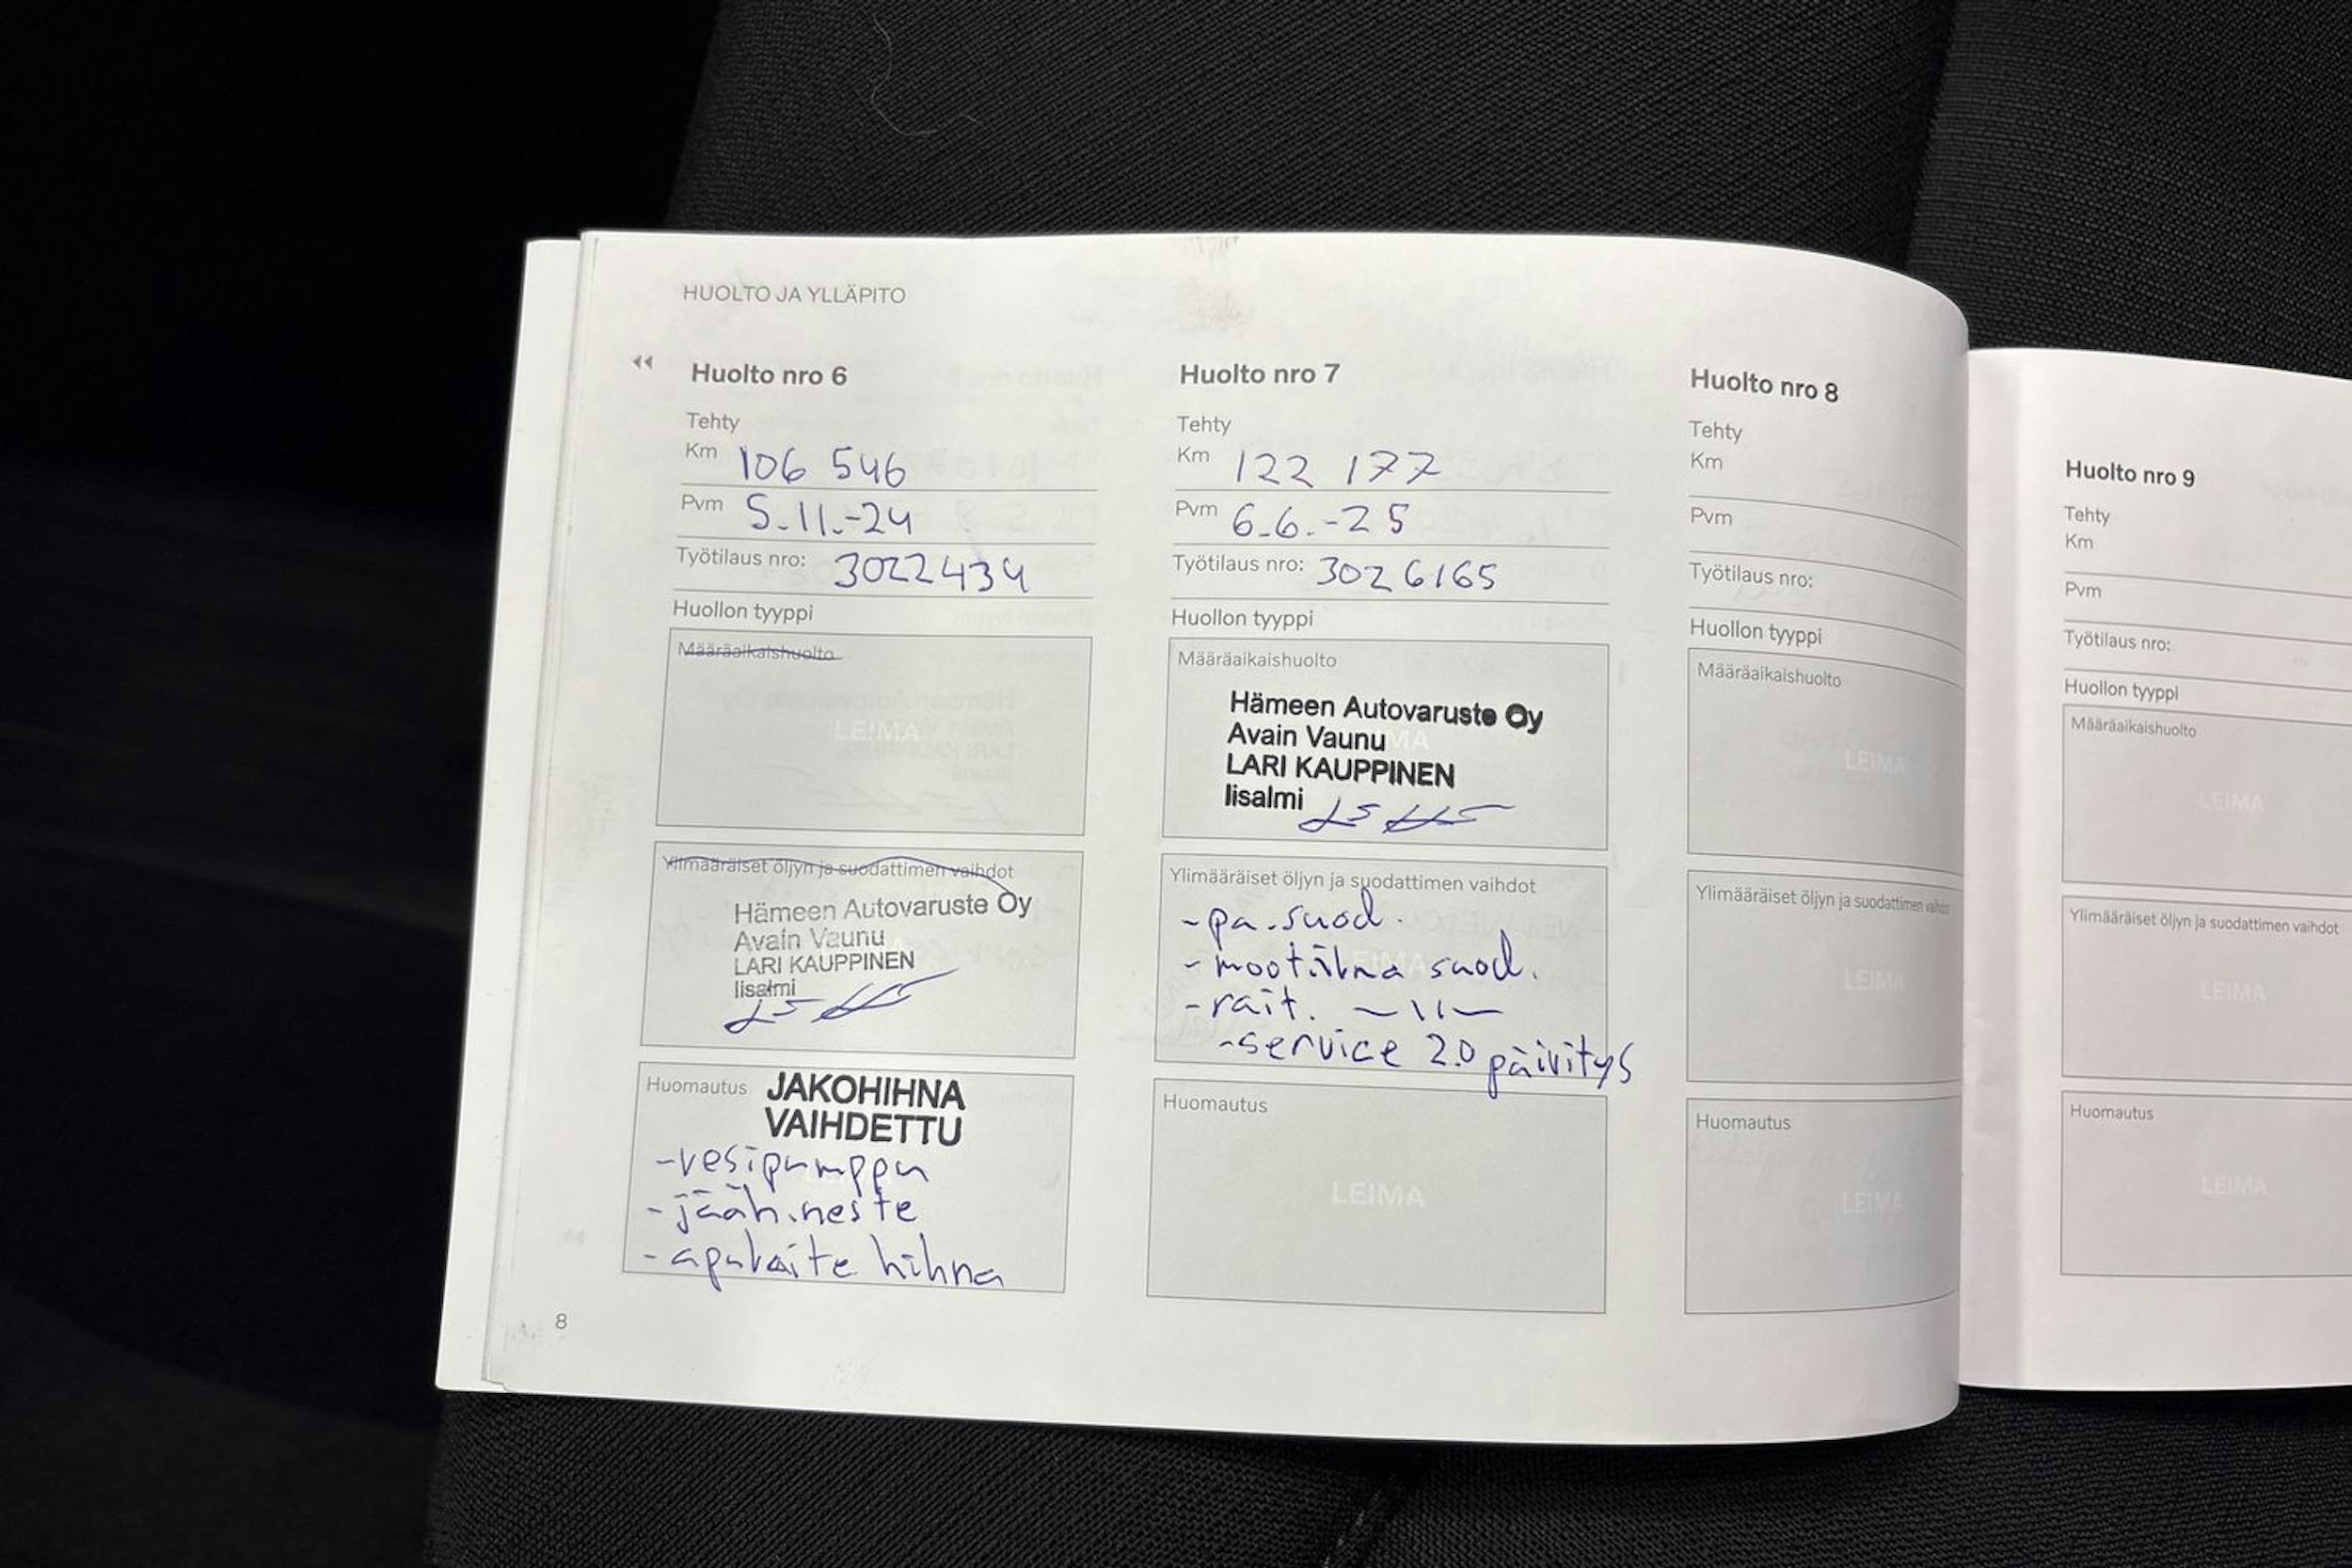 HUOLTO JA YLLÄPITO
Huolto nro 6
Tehty
Km 106 546
Pvm 5.11.-24
Työtilaus nro: 3022434
Huollon tyyppi
Määräaikaishuolto
LEIMA
Ylimääräiset öljyn ja suodattimen vaihdot
Hämeen Autovaruste Oy
Avain Vaunu
LARI KAUPPINEN
Iisalmi
Huomautus
JAKOHIHNA
VAIHDETTU
-vesipumppu
-jääh.neste
-apulaite hihna
8
Huolto nro 7
Tehty
Km 122 177
Pvm 6.6.-25
Työtilaus nro: 3026165
Huollon tyyppi
Määräaikaishuolto
Hämeen Autovaruste Oy
Avain Vaunu
LARI KAUPPINEN
Iisalmi
Ylimääräiset öljyn ja suodattimen vaihdot
-pa.suod.
- suod.
-rait. —\\—
-service 2.0 päivitys
Huomautus
LEIMA
Huolto nro 8
Tehty
Km
Pvm
Työtilaus nro:
Huollon tyyppi
Määräaikaishuolto
LEIMA
Ylimääräiset öljyn ja suodattimen vaihdot
LEIMA
Huomautus
LEIMA
Huolto nro 9
Tehty
Km
Pvm
Työtilaus nro:
Huollon tyyppi
Määräaikaishuolto
LEIMA
Ylimääräiset öljyn ja suodattimen vaihdot
LEIMA
Huomautus
LEIMA